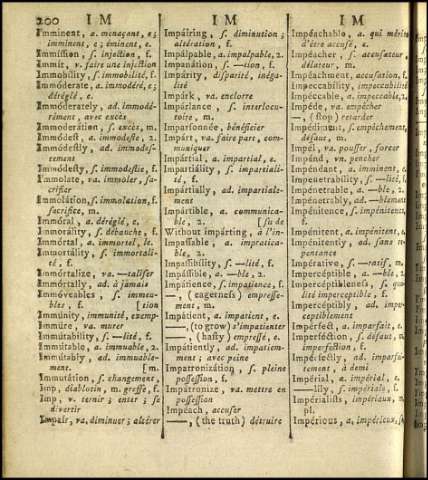 200 I M I M I M
Imminent, a. menaçant, e;
imminent, e; éminent, e.
Immission, ſ. injection, f.
Immit, v. faire une injection
Immobility, ſ. immobilité, f.
Immoderate, a. immodéré, e;
déréglé, e.
Immóderately, ad. immodé-
rément, avec excès
Immoderátion, ſ. excès, m.
Immódeſt, a. immodeſte, 2.
Immódeſtly, ad. immodeſ-
tement
Immódeſty, ſ. immodeſtie, f.
Immolate, va. immoler, ſa-
crifier
Immolátion, ſ. immolation, f.
ſacrifice, m.
Immóral, a. déréglé, e.
Immorality, ſ. débauche, f.
Immórtal, a. immortel, le.
Immortálity, ſ. immortali-
té, f.
Immórtalize, va. —taliſer
Immórtally, ad. à jamais
Immóveables, ſ. immeu-
bles, f. [tion
Immúnity, immunité, exemp-
Immúre, va. murer
Immutability, ſ. —lité, f.
Immútable, a. immuable, 2.
Immútably, ad. immuable-
ment. [m.
Immutátion, ſ. changement,
Imp, diablotin, m. greffe, f.
Imp, v. ternir; enter; ſe
divertir
Impáir, va. diminuer; altérer
Impáiring, ſ. diminution;
altération, f.
Impálpable, a. impalpable, 2.
Impanátion, ſ. —tion, f.
Impárity, diſparité, inéga-
lité
Impárk, va. enclorre
Impárlance, ſ. interlocu-
toire, m.
Imparſonée, bénéficier
Impárt, va. faire part, com-
muniquer
Impártial, a. impartial, e.
Impartiálity, ſ. impartiali-
té, f.
Impártially, ad. impartiale-
ment
Impártible, a. communica-
ble, 2. [ſu de
Without impárting, à l'in-
Impáſſable, a. impratica-
ble, 2.
Impaſſibility, ſ. —lité, f.
Impáſſible, a. —ble, 2.
Impátience, ſ. impatience, f.
—, (eagerneſs) empreſſe-
ment, m.
Impátient, a. impatient, e.
—, (to grow) s'impatienter
—, (haſty) empreſſé, e.
Impátiently, ad. impatiem-
ment; avec peine
Impatronizátion, ſ. pleine
poſſeſſion, f.
Impátronize, va. mettre en
poſſeſſion
Impéach, accuſer
—, (the truth) détruire
Impéachable, a. qui mérite
d'être accuſé, e.
Impéacher, ſ. accuſateur,
délateur, m.
Impéachment, accuſation, f.
Impeccability, impeccabilité
Impéccable, a. impeccable, 2.
Impéde, va. empêcher
—, (ſtop) retarder
Impédiment, ſ. empêchement,
défaut, m.
Impél, va. pouſſer, forcer
Impénd, vn. pencher
Impéndant, a. imminent, e.
Impenetrability, ſ. —lité, f.
Impénetrable, a. —ble, 2.
Impénetrably, ad. —blement
Impénitence, ſ. impénitence,
f.
Impénitent, a. impénitent, e.
Impénitently, ad. ſans re-
pentance
Impérative, ſ. —ratif, m.
Impercéptible, a. —ble, 2.
Impercéptibleneſs, ſ. qua-
lité imperceptible, f.
Impercéptibly, ad. imper-
ceptiblement
Impérfect, a. imparfait, e.
Imperfection, ſ. défaut, m.
imperfection, f.
Impérfectly, ad. imparfai-
tement, à demi
Impérial, a. impérial, e.
—lily, ſ. impériale, f.
Impérialiſts, ſ. impériaux, m.
pl.
Impérious, a. impérieux, ſe